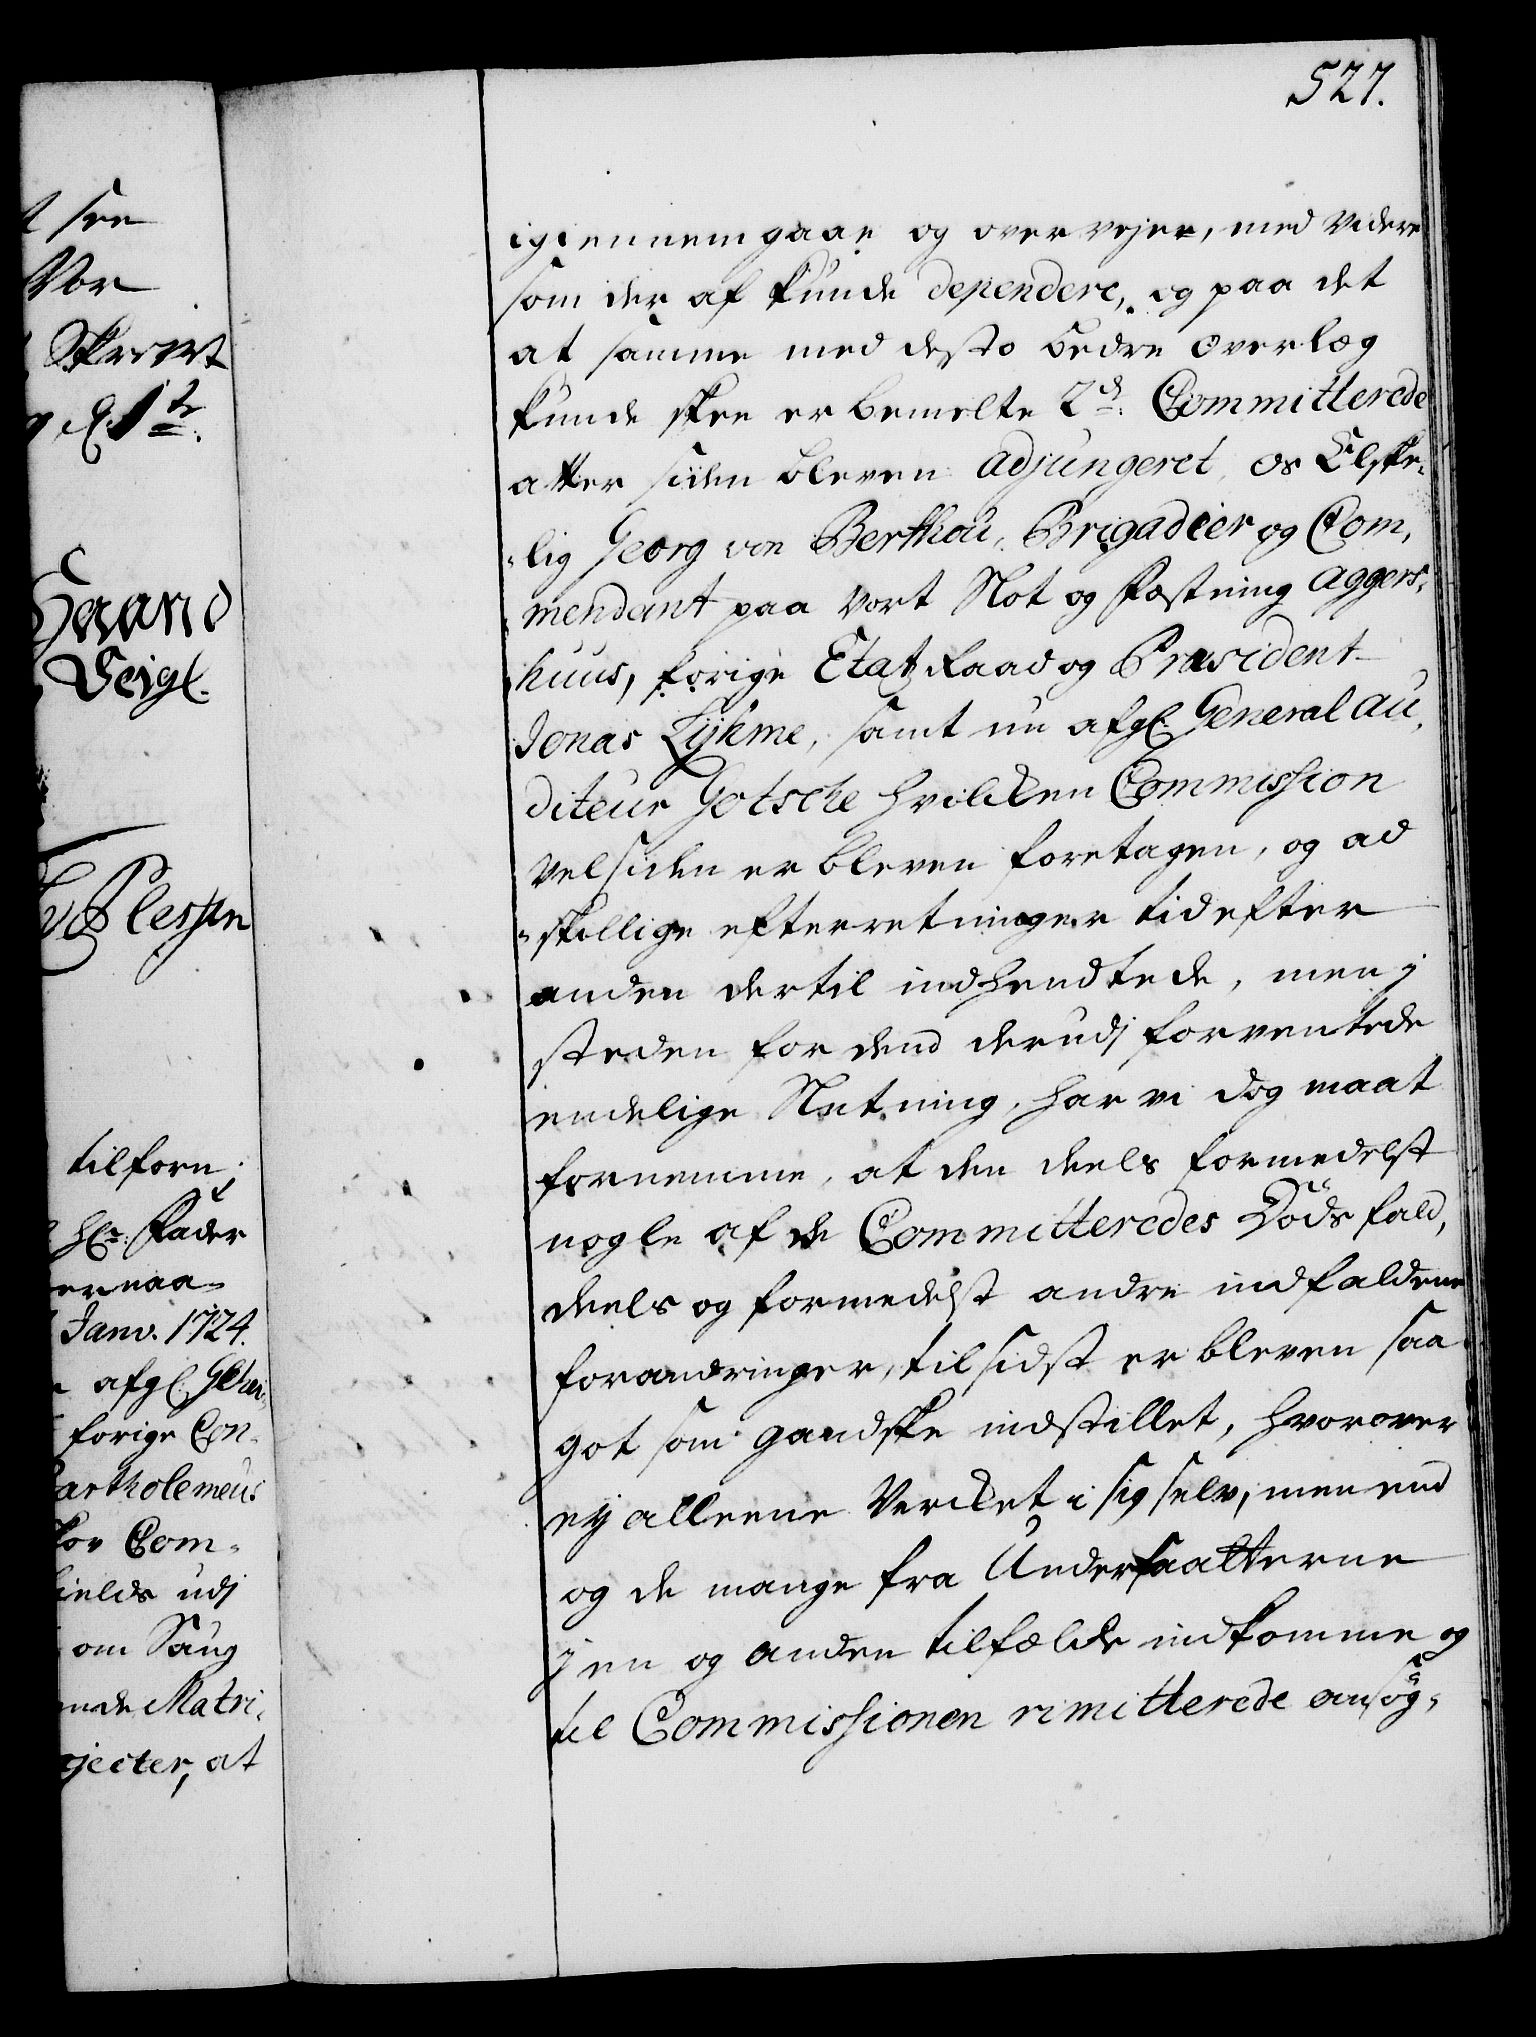 527.
igiennemgaae og overveje, med videre
som der af kunde dependere, og paa det
at samme med desto bedre overlæg
kunde skee er bemelte 2de: Committerede
atter siden bleven adjungeret, os Elske-
lig Georg von Berthou, Brigadeer og Com,
mendant paa vort Slot og Fæstning Aggers,
huus, forige Etatz Raad og Præsident
Jonas Lyhme, samt nu afg: General au,
diteur Gotsche hvilcken Commission
vel siden er bleven foretagen, og ad
skillige efterretninger tid efter
anden dertil indhendtede, men j
steden for dend derudj forventede
endelige Slutning, har vi dog maat
fornemme, at den deels formedelst
nogle af de Committeredes Dödsfald,
deels og formedelst andre indfaldene
forandringer, til sidst er bleven saa
got som gandske indstillet, hvorover
ey alleene Vercket i sig selv, men end
og de mange fra Undersaatterne
j en og anden tilfælde indkomme og
til Commissionen remitterede ansøg,
see
Vor
Skrevet
Haand
Seigl.
v Plessen
tilforn
Hr: Fader
ernaa
Janv. 1724.
afg:
forige Con-
artholemeus
for Com-
fields udj
om Saug
nde Matri,
ojecter, at